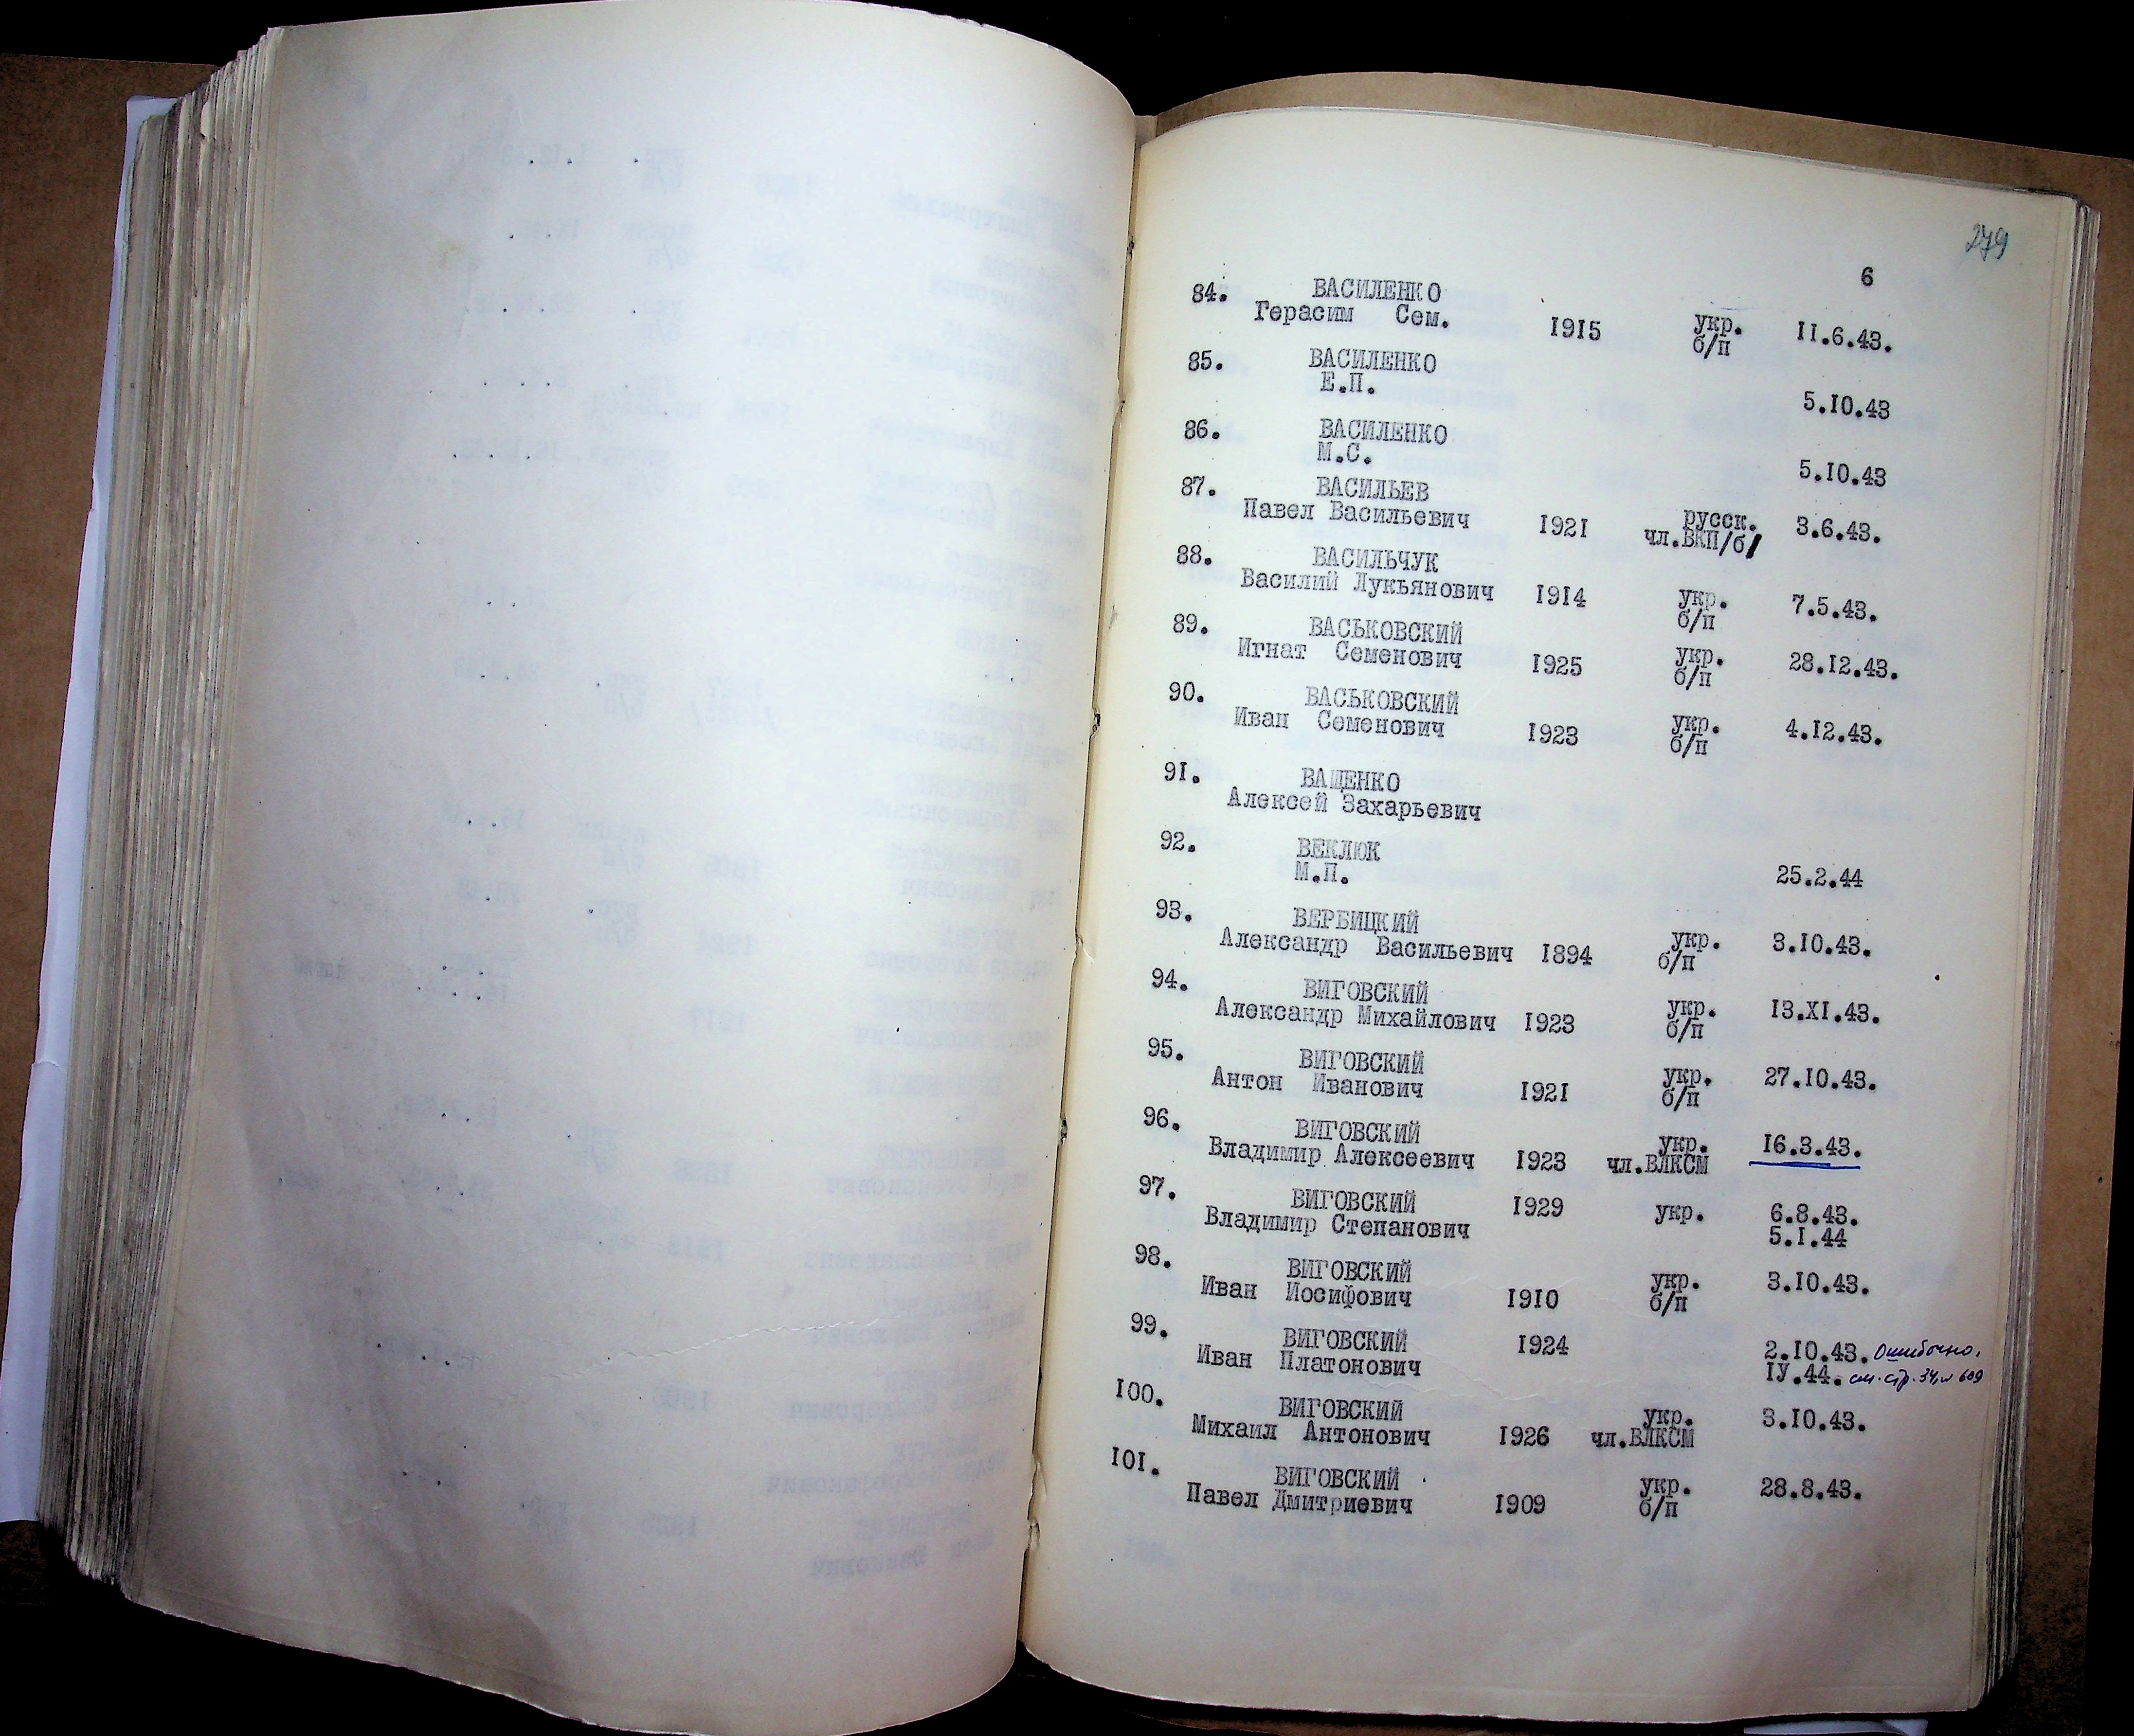 279
6
84. ВАСИЛЕНКО
Герасим Сем. 1915 укр. 11.6.43.
б/п
85. ВАСИЛЕНКО
Е.П. 5.10.43
86. ВАСИЛЕНКО
М.С. 5.10.43
87. ВАСИЛЬЕВ
Павел Васильевич 1921 русск. 3.6.43.
чл.ВКП/б/
88. ВАСИЛЬЧУК
Василий Лукъянович 1914 укр. 7.5.43.
б/п
89. ВАСЬКОВСКИЙ
Игнат Семенович 1925 укр. 28.12.43.
б/п
90. ВАСЬКОВСКИЙ
Иван Семенович 1923 укр. 4.12.43.
б/п
91. ВАЩЕНКО
Алексей Захарьевич
92. ВЕКЛЮК
М.П. 25.2.44
93. ВЕРБИЦКИЙ
Александр Васильевич 1894 укр. 3.10.43.
б/п
94. ВИГОВСКИЙ
Александр Михайлович 1923 укр. 13.XI.43.
б/п
95. ВИГОВСКИЙ
Антон Иванович 1921 укр. 27.10.43.
б/п
96. ВИГОВСКИЙ
Владимир Алексеевич 1923 укр. 16.3.43.
чл.ВЛКСМ
97. ВИГОВСКИЙ 1929 укр. 6.8.43.
Владимир Степанович 5.1.44
98. ВИГОВСКИЙ
Иван Иосифович 1910 укр. 3.10.43.
б/п
99. ВИГОВСКИЙ 1924 2.10.43. Ошибочно.
Иван Платонович IУ.44. см. стр. 34, № 609
100. ВИГОВСКИЙ
Михаил Антонович 1926 укр. 3.10.43.
чл.ВЛКСМ
101. ВИГОВСКИЙ
Павел Дмитриевич 1909 укр. 28.8.43.
б/п